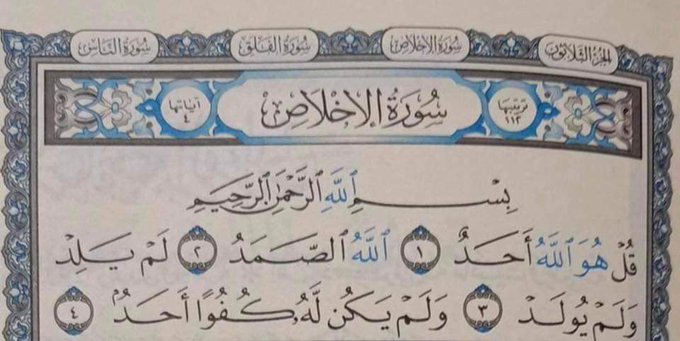 الجزء الثلاثون
سورة الإخلاص
سورة الفلق
سورة الناس
ترتيبها ١١٢
سُورَةُ الإِخْلَاصِ
آياتها ٤
بِسْمِ اللَّهِ الرَّحْمَٰنِ الرَّحِيمِ
قُلْ هُوَ اللَّهُ أَحَدٌ ١ اللَّهُ الصَّمَدُ ٢ لَمْ يَلِدْ
وَلَمْ يُولَدْ ٣ وَلَمْ يَكُن لَّهُ كُفُوًا أَحَدٌ ٤